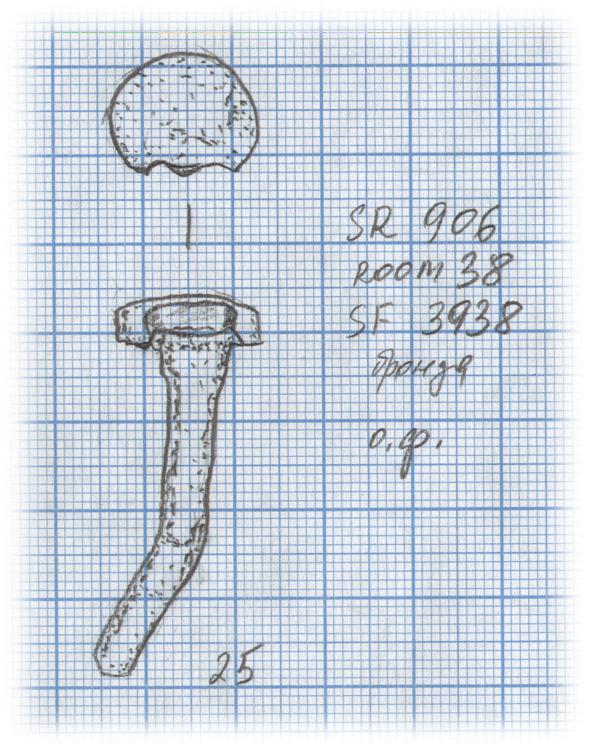 SR 906
ROOM 38
SF 3938
бронза
о.ф.
25